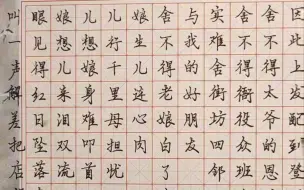 因此上发配到登
舍不得太爷的恩
舍不得衙役众班
实难舍街坊四邻
与我的好朋友
舍不得老娘白了
娘生儿连心肉
儿行千里母担忧
儿想娘身难叩首
娘想儿来泪双流
眼见得红日坠落
叫一声解差把店